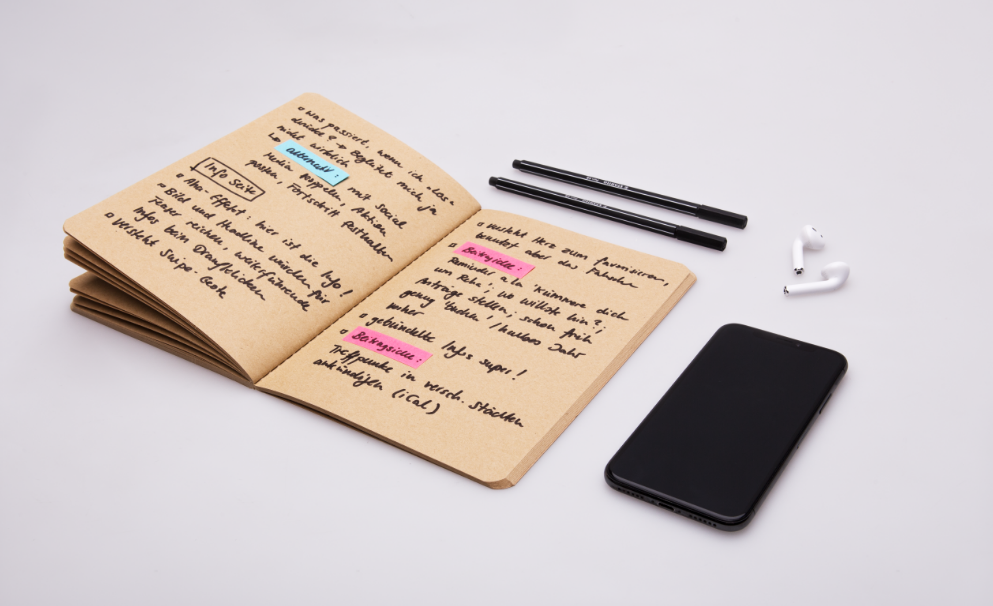 was passiert, wenn ich "los-
drücke"? → Begleitet mich ja
nicht wirklich
↳ alternativ: mit Social
Media koppeln, Aktion
posten, Fortschritt festhalten
Info Seite
Aha-Effekt: hier ist die Info!
Bild und Headline würden für
Teaser reichen, weiterführende
Infos beim Draufklicken
versteht Swipe-
Geste
versteht Herz zum favorisieren,
benutzt aber das Fahnen
Beitragsidee:
Reminder a la 'Kümmere dich
um Reha', wo willst hin?,
Anträge stellen, schon früh
genug buchen / halbes Jahr
vorher
gebündelte Infos super!
Beitragsidee:
Treffpunkte in versch. Städten
ankündigen (iCal)